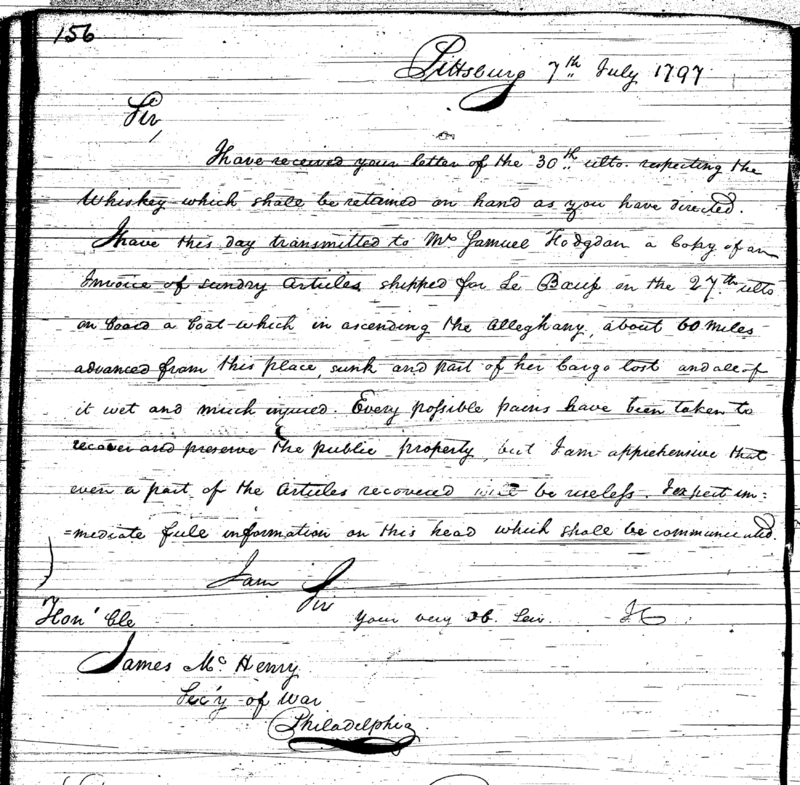 156
Pittsburg 7th July 1797
Sir,
I have received your letter of the 30th ulto. respecting the
Whiskey which shall be retained on hand as you have directed.
I have this day transmitted to Mr Samuel Hodgdan a Copy of an
Invoice of sundry articles shipped for Le Bauf on the 27th ulto
on board a boat which in ascending the Alleghany, about 60 miles
advanced from this place, sunk and part of her Cargo lost and all of
it wet and much injured. Every possible pains have been taken to
recover and preserve the public property, but I am apprehensive that
even a part of the articles recovered will be useless. I expect im=
=mediate full information on this head which shall be communicated.
I am Sir
Hon'ble your very ob. Ser. IC
James McHenry
Sec'y of War
Philadelphia